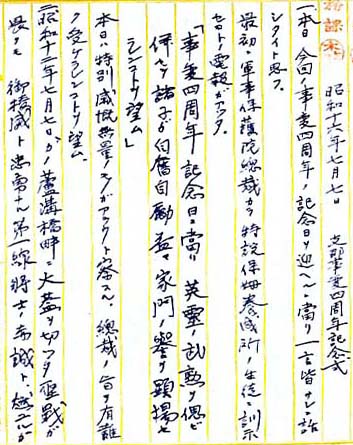 昭和十六年七月七日　支那事変四周年記念式
一、本日今回ノ事変四周年ノ記念日ヲ迎ヘルニ當リ一言皆サンニ話
シタイト思フ。
最初ニ軍事保護院總裁カラ特設保姆養成所ノ生徒ニ訓示
セヨトノ電報ガアッタ。
「事変四周年記念日ニ當リ英霊ノ武勲ヲ偲ビ
併セテ諸子ガ自奮自励益々家門ノ誉ヲ顕揚セ
ンコトヲ望ム」
本日ハ特別感慨無量ノモノガアラウト察スル。總裁ノ旨ヲ有難
ク受ケラレンコトヲ望ム。
二、昭和十二年七月七日ガ蘆溝橋畔ニ火蓋ヲ切ッタ聖戦ガ
長クモ御稜威ト忠勇ナル第一線将士ノ赤誠ト